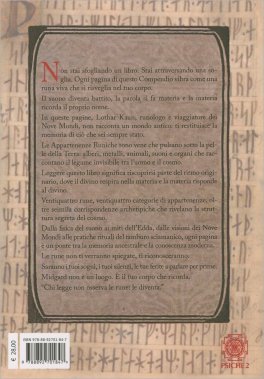 Non stai sfogliando un libro. Stai attraversando una so-
glia. Ogni pagina di questo Compendio vibra come una
runa viva che si risveglia nel tuo corpo.
Il suono diventa battito, la parola si fa materia e la materia
ricorda il proprio nome.
In queste pagine, Lothar Kaus, runologo e viaggiatore dei
Nove Mondi, non racconta un mondo antico: ti restituisce la
memoria di ciò che sei sempre stato.
Le Appartenenze Runiche sono vene che pulsano sotto la pel-
le della Terra: alberi, metalli, animali, suoni e organi che raccon-
tano il legame invisibile tra l'uomo e il cosmo.
Leggere questo libro significa riscoprirsi parte del ritmo origi-
nario, dove il divino respira nella materia e la materia risponde
al divino.
Ventiquattro rune, ventiquattro categorie di appartenenze, ol-
tre seimila corrispondenze archetipiche che rivelano la strut-
tura segreta del cosmo.
Dalla fisica del suono ai miti dell'Edda, dalle visioni dei Nove
Mondi alle pratiche rituali del tamburo sciamanico, ogni pagina
è un ponte tra la memoria ancestrale e la conoscenza moderna.
Le rune non ti verranno spiegate, ti riconosceranno.
Saranno i tuoi sogni, i tuoi silenzi, le tue ferite a parlare per prime.
Midgard non è un luogo. È il tuo corpo che ricorda.
"Chi legge non osserva le rune: le diventa."
€ 28,00
PSICHE 2